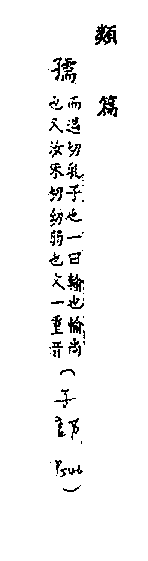 類篇
孺
而遇切乳子也一曰輸也愉尚
也又汝朱切幼弱也文一重音
(子部, P546)